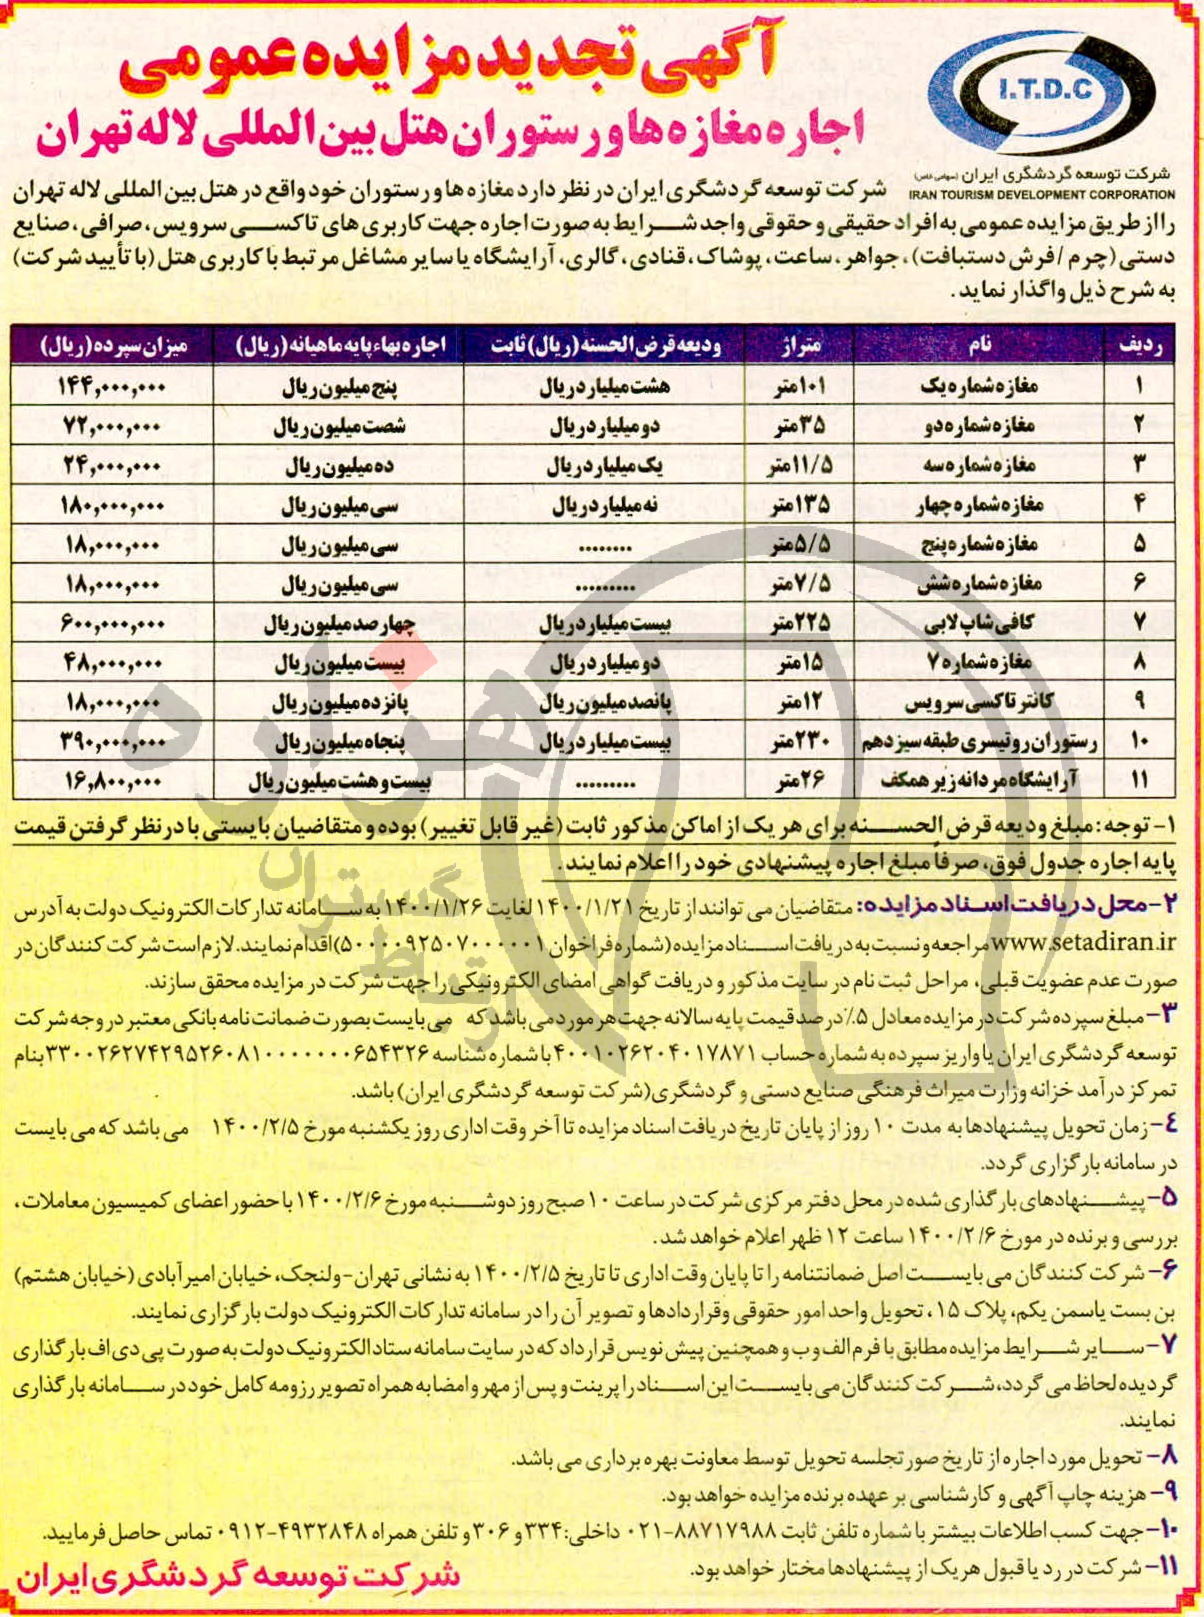 آگهی تجدید مزایده عمومی
اجاره مغازه ها و رستوران هتل بین المللی لاله تهران
I.T.D.C
شرکت توسعه گردشگری ایران (سهامی خاص)
IRAN TOURISM DEVELOPMENT CORPORATION
شرکت توسعه گردشگری ایران در نظر دارد مغازه ها و رستوران خود واقع در هتل بین المللی لاله تهران
را از طریق مزایده عمومی به افراد حقیقی و حقوقی واجد شرایط به صورت اجاره جهت کاربری های تاکسی سرویس، صرافی، صنایع
دستی (چرم / فرش دستبافت)، جواهر، ساعت، پوشاک، قنادی، گالری، آرایشگاه یا سایر مشاغل مرتبط با کاربری هتل (با تأیید شرکت)
به شرح ذیل واگذار نماید.
ردیف نام متراژ ودیعه قرض الحسنه (ریال) ثابت اجاره بهاء پایه ماهیانه (ریال) میزان سپرده (ریال)
۱ مغازه شماره یک ۱۰۱ متر هشت میلیارد ریال پنج میلیون ریال ۱۴۴,۰۰۰,۰۰۰
۲ مغازه شماره دو ۳۵ متر دو میلیارد ریال شصت میلیون ریال ۷۲,۰۰۰,۰۰۰
۳ مغازه شماره سه ۱۱/۵ متر یک میلیارد ریال ده میلیون ریال ۲۴,۰۰۰,۰۰۰
۴ مغازه شماره چهار ۱۳۵ متر نه میلیارد ریال سی میلیون ریال ۱۸۰,۰۰۰,۰۰۰
۵ مغازه شماره پنج ۵/۵ متر ........ سی میلیون ریال ۱۸,۰۰۰,۰۰۰
۶ مغازه شماره شش ۷/۵ متر ......... سی میلیون ریال ۱۸,۰۰۰,۰۰۰
۷ کافی شاپ لابی ۲۲۵ متر بیست میلیارد ریال چهارصد میلیون ریال ۶۰۰,۰۰۰,۰۰۰
۸ مغازه شماره ۷ ۱۵ متر دو میلیارد ریال بیست میلیون ریال ۴۸,۰۰۰,۰۰۰
۹ کانتر تاکسی سرویس ۱۲ متر پانصد میلیون ریال پانزده میلیون ریال ۱۸,۰۰۰,۰۰۰
۱۰ رستوران روتیسری طبقه سیزدهم ۲۳۰ متر بیست میلیارد ریال پنجاه میلیون ریال ۳۹۰,۰۰۰,۰۰۰
۱۱ آرایشگاه مردانه زیر همکف ۲۶ متر ......... بیست و هشت میلیون ریال ۱۶,۸۰۰,۰۰۰
۱- توجه: مبلغ ودیعه قرض الحسنه برای هر یک از اماکن مذکور ثابت (غیر قابل تغییر) بوده و متقاضیان بایستی با در نظر گرفتن قیمت
پایه اجاره جدول فوق، صرفاً مبلغ اجاره پیشنهادی خود را اعلام نمایند.
۲- محل دریافت اسناد مزایده: متقاضیان می توانند از تاریخ ۱۴۰۰/۱/۲۱ لغایت ۱۴۰۰/۱/۲۶ به سامانه تدارکات الکترونیک دولت به آدرس
www.setadiran.ir مراجعه و نسبت به دریافت اسناد مزایده (شماره فراخوان ۵۰۰۰۰۹۲۵۰۷۰۰۰۰۰۱) اقدام نمایند. لازم است شرکت کنندگان در
صورت عدم عضویت قبلی، مراحل ثبت نام در سایت مذکور و دریافت گواهی امضای الکترونیکی را جهت شرکت در مزایده محقق سازند.
۳- مبلغ سپرده شرکت در مزایده معادل ۵٪ درصد قیمت پایه سالانه جهت هر مورد می باشد که می بایست بصورت ضمانت نامه بانکی معتبر در وجه شرکت
توسعه گردشگری ایران یا واریز سپرده به شماره حساب ۴۰۰۱۰۲۶۲۰۴۰۱۷۸۷۱ با شماره شناسه ۳۳۰۰۲۶۲۷۴۲۹۵۲۶۰۸۱۰۰۰۰۰۰۰۰۶۵۴۳۲۶ بنام
تمرکز درآمد خزانه وزارت میراث فرهنگی صنایع دستی و گردشگری (شرکت توسعه گردشگری ایران) باشد.
۴- زمان تحویل پیشنهادها به مدت ۱۰ روز از پایان تاریخ دریافت اسناد مزایده تا آخر وقت اداری روز یکشنبه مورخ ۱۴۰۰/۲/۵ می باشد که می بایست
در سامانه بارگزاری گردد.
۵- پیشنهادهای بارگذاری شده در محل دفتر مرکزی شرکت در ساعت ۱۰ صبح روز دوشنبه مورخ ۱۴۰۰/۲/۶ با حضور اعضای کمیسیون معاملات،
بررسی و برنده در مورخ ۱۴۰۰/۲/۶ ساعت ۱۲ ظهر اعلام خواهد شد.
۶- شرکت کنندگان می بایست اصل ضمانتنامه را تا پایان وقت اداری تا تاریخ ۱۴۰۰/۲/۵ به نشانی تهران- ولنجک، خیابان امیرآبادی (خیابان هشتم)
بن بست یاسمن یکم، پلاک ۱۵، تحویل واحد امور حقوقی وقراردادها و تصویر آن را در سامانه تدارکات الکترونیک دولت بارگزاری نمایند.
۷- سایر شرایط مزایده مطابق با فرم الف و ب و همچنین پیش نویس قرارداد که در سایت سامانه ستاد الکترونیک دولت به صورت پی دی اف بارگذاری
گردیده لحاظ می گردد، شرکت کنندگان می بایست این اسناد را پرینت و پس از مهر و امضا به همراه تصویر رزومه کامل خود در سامانه بارگذاری
نمایند.
۸- تحویل مورد اجاره از تاریخ صورتجلسه تحویل توسط معاونت بهره برداری می باشد.
۹- هزینه چاپ آگهی و کارشناسی بر عهده برنده مزایده خواهد بود.
۱۰- جهت کسب اطلاعات بیشتر با شماره تلفن ثابت ۸۸۷۱۷۹۸۸-۰۲۱ داخلی: ۳۳۴ و ۳۰۶ و تلفن همراه ۴۹۳۲۸۴۸-۰۹۱۲ تماس حاصل فرمایید.
۱۱- شرکت در رد یا قبول هر یک از پیشنهادها مختار خواهد بود.
شرکت توسعه گردشگری ایران
هزاره